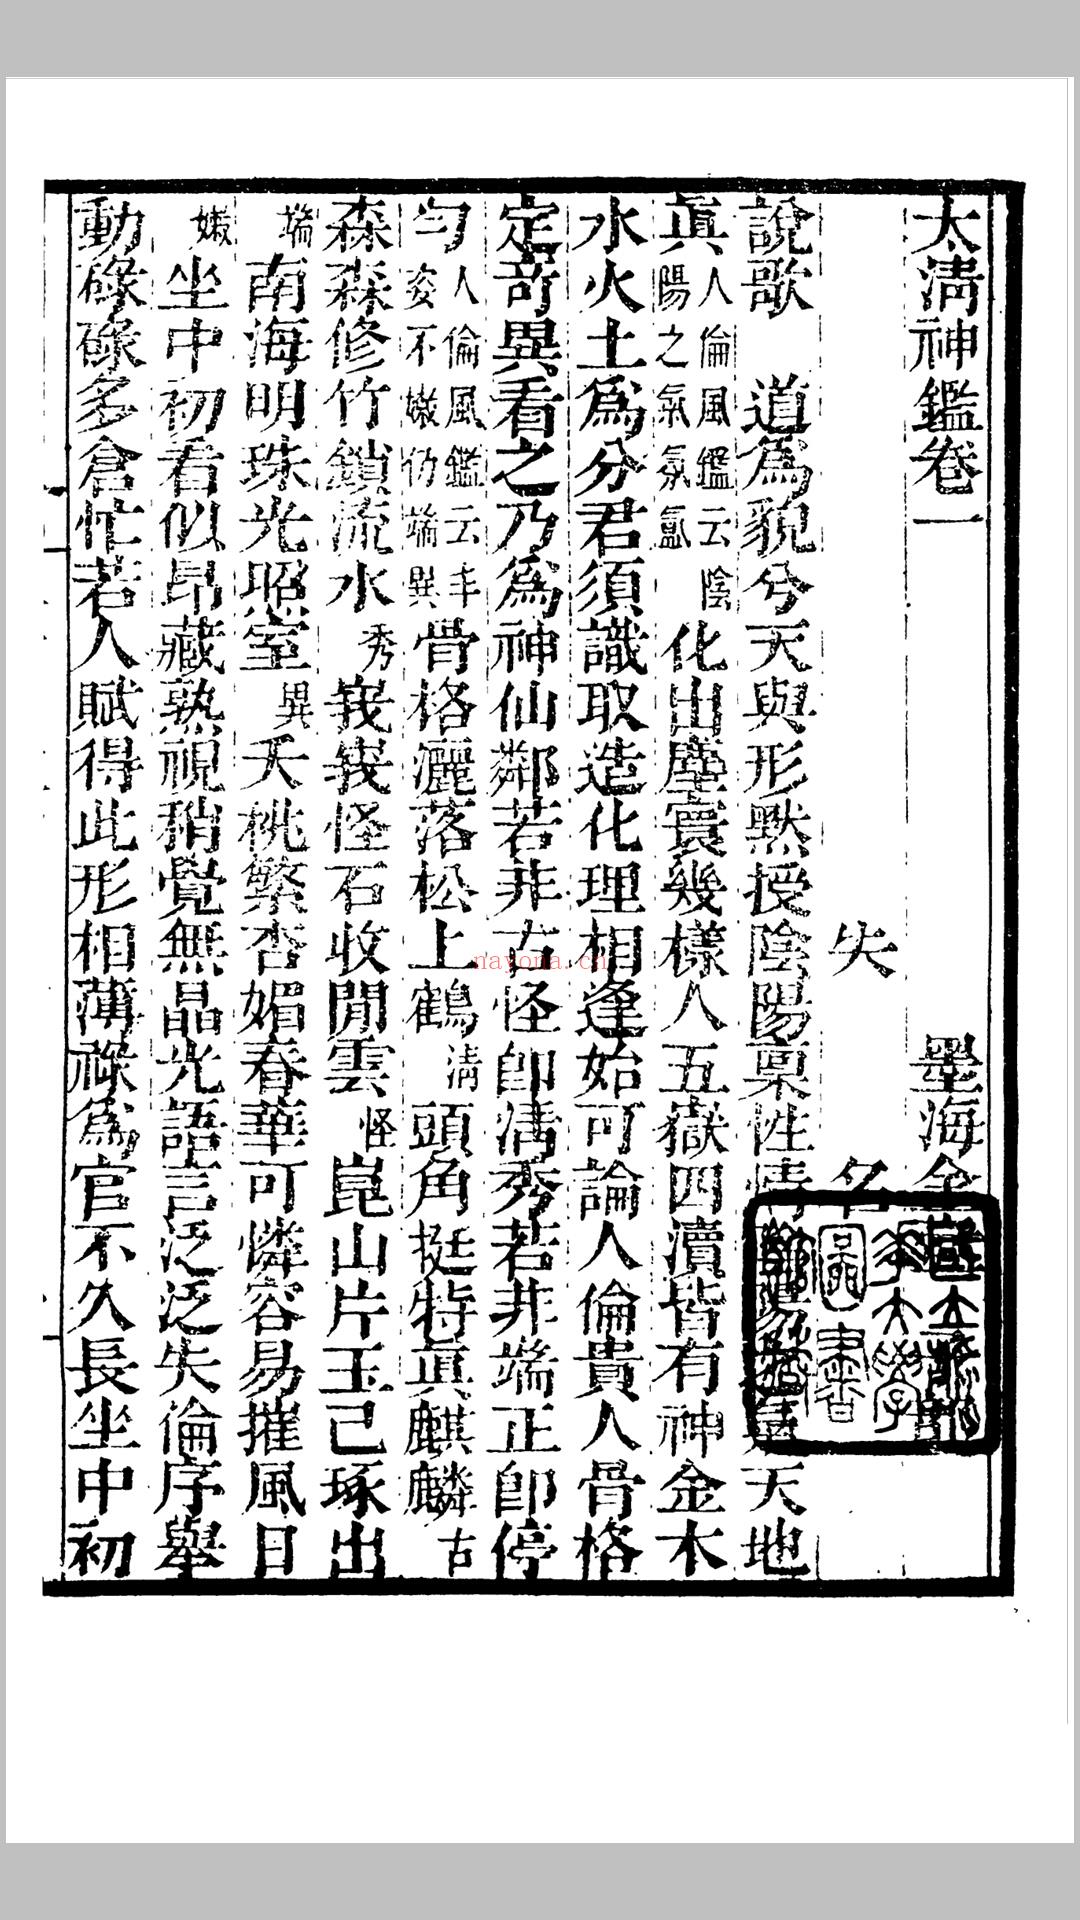 太清神鑑卷一 墨海金
失 名
說歌 道爲貌兮天與形默授陰陽稟性情 天地
真人倫風鑑云陰陽之氣氛氳化出塵寰幾樣人五嶽四瀆皆有神金木
水火土爲分君須識取造化理相逢始可論人倫貴人骨格
定竒異看之乃爲神仙鄰若非古怪卽淸秀若非端正卽停
勻人倫風鑑云丰姿不嫩仍端異骨格灑落松上鶴淸頭角挺特真麒麟古
森森修竹鎖流水秀峩峩怪石收閒雲怪崑山片玉已琢出
端南海明珠光照室異夭桃繁杏媚春華可憐容易摧風日
嫩坐中初看似昂藏熟視稍覺無晶光語言泛泛失倫序舉
動碌碌多倉忙若人賦得此形相薄祿爲官不久長坐中初
國立
大學
圖書
nayona.cn